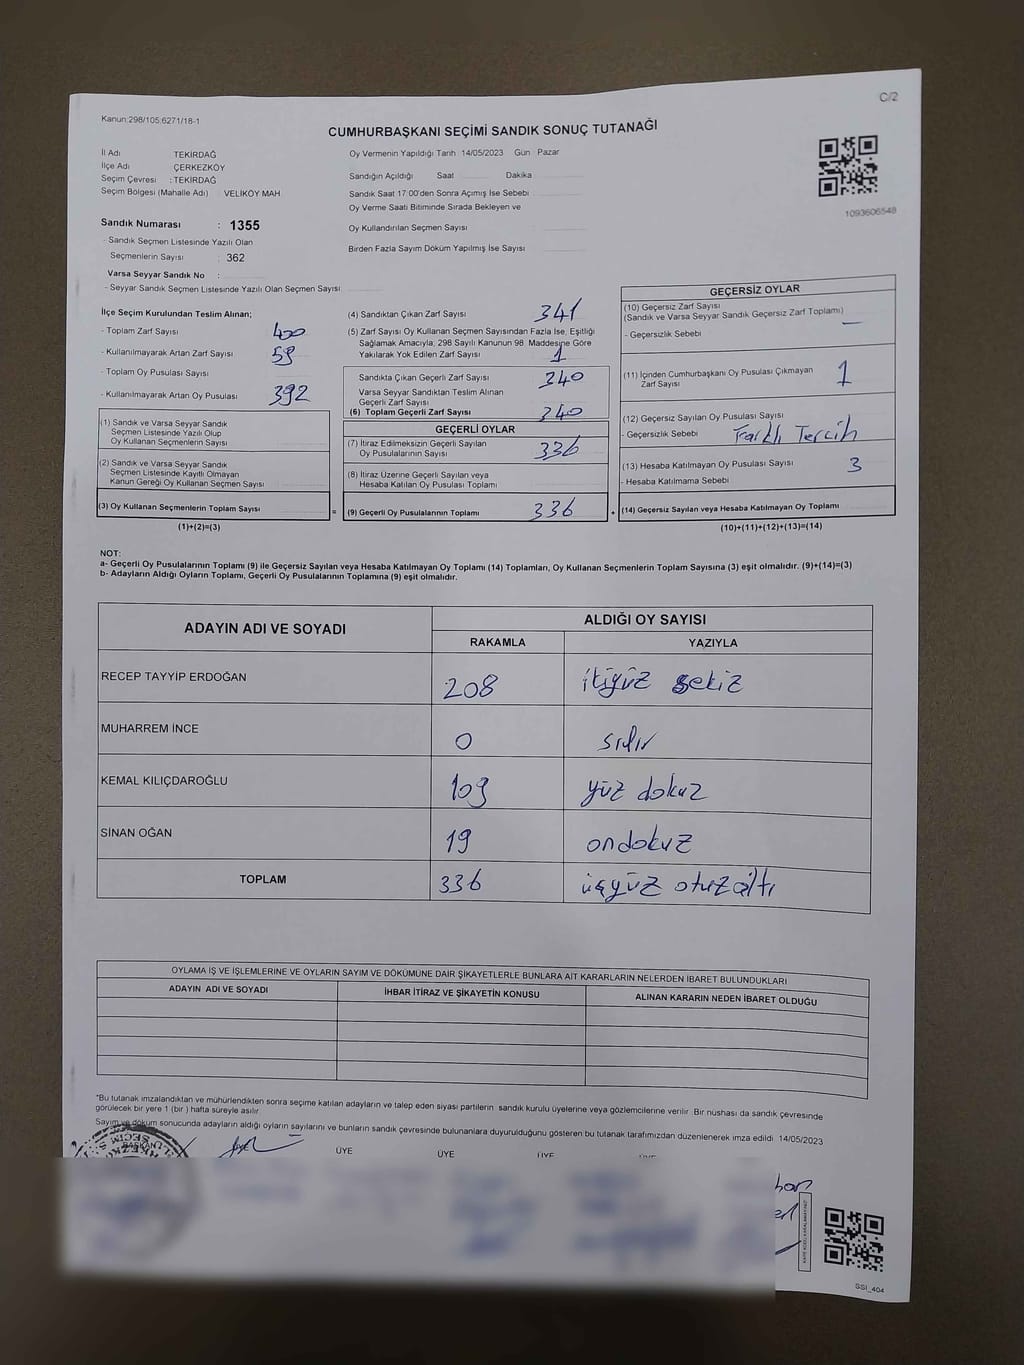 C/2
Kanun:298/105,6271/18-1
CUMHURBAŞKANI SEÇİMİ SANDIK SONUÇ TUTANAĞI
İl Adı TEKİRDAĞ
İlçe Adı ÇERKEZKÖY
Seçim Çevresi : TEKİRDAĞ
Seçim Bölgesi (Mahalle Adı) VELİKÖY MAH
Oy Vermenin Yapıldığı Tarih 14/05/2023 Gün Pazar
Sandığın Açıldığı Saat Dakika
Sandık Saat 17:00'den Sonra Açımış İse Sebebi
Oy Verme Saati Bitiminde Sırada Bekleyen ve
Oy Kullandırılan Seçmen Sayısı
Birden Fazla Sayım Döküm Yapılmış İse Sayısı
1093606548
Sandık Numarası : 1355
- Sandık Seçmen Listesinde Yazılı Olan
Seçmenlerin Sayısı : 362
Varsa Seyyar Sandık No :
- Seyyar Sandık Seçmen Listesinde Yazılı Olan Seçmen Sayısı
İlçe Seçim Kurulundan Teslim Alınan;
- Toplam Zarf Sayısı 400
- Kullanılmayarak Artan Zarf Sayısı 59
- Toplam Oy Pusulası Sayısı
- Kullanılmayarak Artan Oy Pusulası 392
(1) Sandık ve Varsa Seyyar Sandık
Seçmen Listesinde Yazılı Olup
Oy Kullanan Seçmenlerin Sayısı
(2) Sandık ve Varsa Seyyar Sandık
Seçmen Listesinde Kayıtlı Olmayan
Kanun Gereği Oy Kullanan Seçmen Sayısı
(3) Oy Kullanan Seçmenlerin Toplam Sayısı =
(1)+(2)=(3)
(4) Sandıktan Çıkan Zarf Sayısı 341
(5) Zarf Sayısı Oy Kullanan Seçmen Sayısından Fazla İse, Eşitliği
Sağlamak Amacıyla; 298 Sayılı Kanunun 98. Maddesine Göre
Yakılarak Yok Edilen Zarf Sayısı 1
Sandıkta Çıkan Geçerli Zarf Sayısı 340
Varsa Seyyar Sandıktan Teslim Alınan
Geçerli Zarf Sayısı
(6) Toplam Geçerli Zarf Sayısı 340
GEÇERLİ OYLAR
(7) İtiraz Edilmeksizin Geçerli Sayılan
Oy Pusulalarının Sayısı 336
(8) İtiraz Üzerine Geçerli Sayılan veya
Hesaba Katılan Oy Pusulası Toplamı
(9) Geçerli Oy Pusulalarının Toplamı 336 +
GEÇERSİZ OYLAR
(10) Geçersiz Zarf Sayısı
(Sandık ve Varsa Seyyar Sandık Geçersiz Zarf Toplamı) —
- Geçersizlik Sebebi
(11) İçinden Cumhurbaşkanı Oy Pusulası Çıkmayan
Zarf Sayısı 1
(12) Geçersiz Sayılan Oy Pusulası Sayısı
- Geçersizlik Sebebi Farklı Tercih
(13) Hesaba Katılmayan Oy Pusulası Sayısı 3
- Hesaba Katılmama Sebebi
(14) Geçersiz Sayılan veya Hesaba Katılmayan Oy Toplamı
(10)+(11)+(12)+(13)=(14)
NOT:
a- Geçerli Oy Pusulalarının Toplamı (9) ile Geçersiz Sayılan veya Hesaba Katılmayan Oy Toplamı (14) Toplamları, Oy Kullanan Seçmenlerin Toplam Sayısına (3) eşit olmalıdır. (9)+(14)=(3)
b- Adayların Aldığı Oyların Toplamı, Geçerli Oy Pusulalarının Toplamına (9) eşit olmalıdır.
ADAYIN ADI VE SOYADI ALDIĞI OY SAYISI
RAKAMLA YAZIYLA
RECEP TAYYİP ERDOĞAN 208 ikiyüz sekiz
MUHARREM İNCE 0 sıfır
KEMAL KILIÇDAROĞLU 109 yüz dokuz
SİNAN OĞAN 19 ondokuz
TOPLAM 336 üçyüz otuzaltı
OYLAMA İŞ VE İŞLEMLERİNE VE OYLARIN SAYIM VE DÖKÜMÜNE DAİR ŞİKAYETLERLE BUNLARA AİT KARARLARIN NELERDEN İBARET BULUNDUKLARI
ADAYIN ADI VE SOYADI İHBAR İTİRAZ VE ŞİKAYETİN KONUSU ALINAN KARARIN NEDEN İBARET OLDUĞU
*Bu tutanak imzalandıktan ve mühürlendikten sonra seçime katılan adayların ve talep eden siyasi partilerin sandık kurulu üyelerine veya gözlemcilerine verilir. Bir nushası da sandık çevresinde
görülecek bir yere 1 (bir) hafta süreyle asılır
Sayım ve döküm sonucunda adayların aldığı oyların sayılarını ve bunların sandık çevresinde bulunanlara duyurulduğunu gösteren bu tutanak tarafımızdan düzenlenerek imza edildi. 14/05/2023
BAŞKAN ÜYE ÜYE ÜYE ÜYE
SSI_404